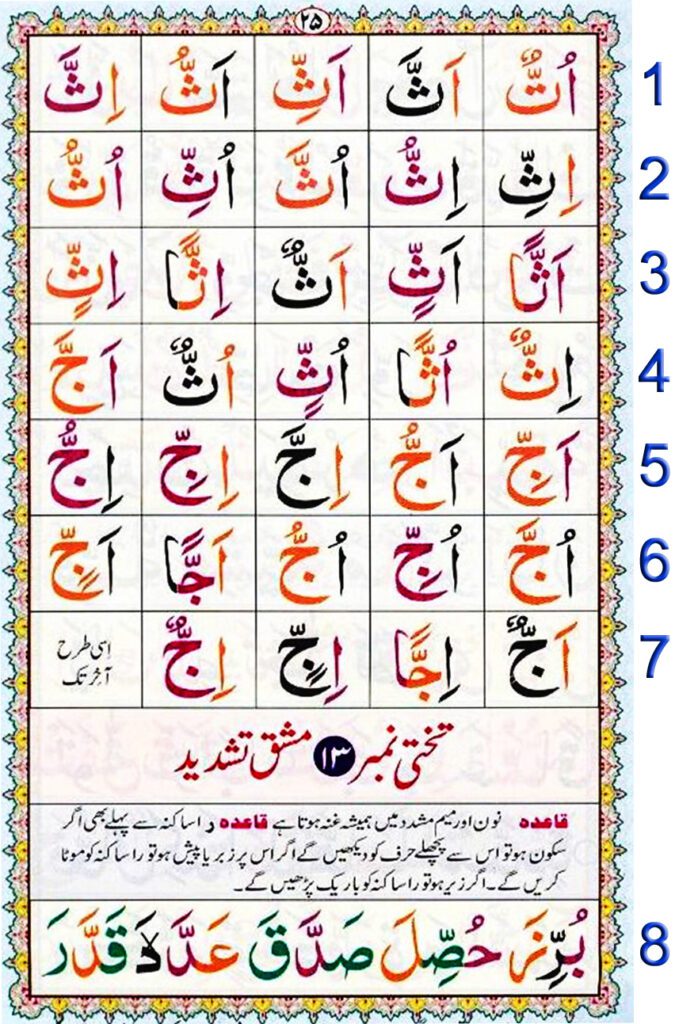 ۲۵
اُتٌّ اَثَّ اَثِّ اَثُّ اِثَّ 1
اِثِّ اِثُّ اُثَّ اُثِّ اُثُّ 2
اَثًّا اَثٍّ اَثٌّ اِثًّا اِثٍّ 3
اِثٌّ اُثًّا اُثٍّ اُثٌّ اَجَّ 4
اَجِّ اَجُّ اِجَّ اِجِّ اِجُّ 5
اُجَّ اُجِّ اُجُّ اَجًّا اَجٍّ 6
اَجٌّ اِجًّا اِجٍّ اِجٌّ اِسی طرح آخر تک 7
تختی نمبر ۱۳ مشق تشدید
قاعدہ نون اور میم مشدد میں ہمیشہ غنہ ہوتا ہے قاعدہ را ساکنہ سے پہلے بھی اگر
سکون ہو تو اس سے پچھلے حرف کو دیکھیں گے اگر اس پر زبر یا پیش ہو تو را ساکنہ کو موٹا
کریں گے۔ اگر زیر ہو تو را ساکنہ کو باریک پڑھیں گے۔
بُرِّزَ حُصِّلَ صَدَّقَ عَدَّدَ لا قَدَّرَ 8